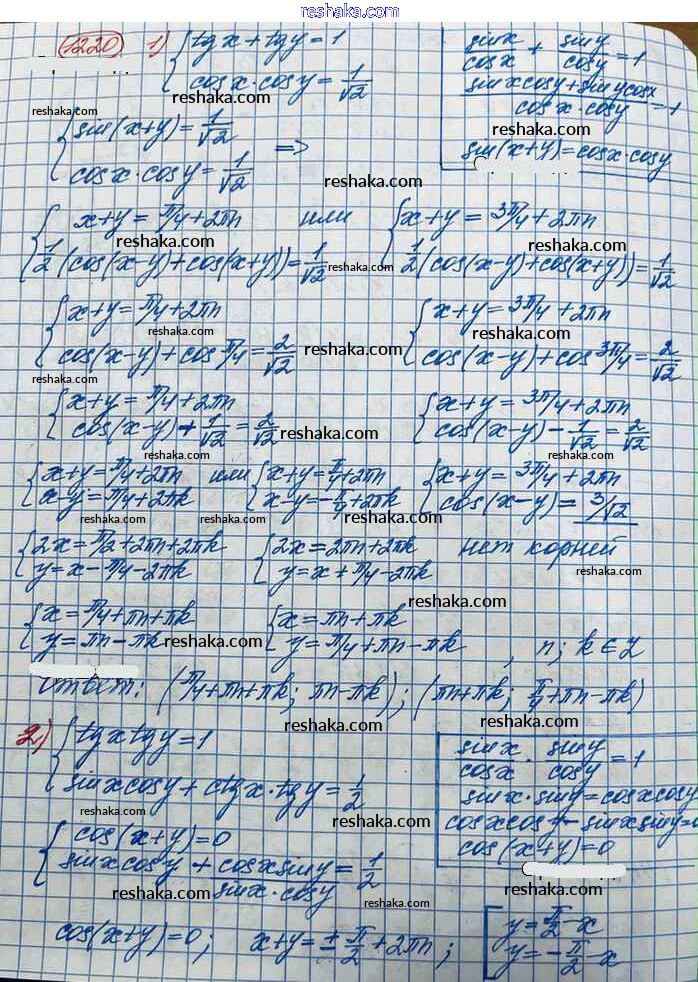 reshaka.com
1220 1) { tg x + tg y = 1
cos x · cos y = 1/√2
sin x/cos x + sin y/cos y = 1
(sin x cos y + sin y cos x)/(cos x · cos y) = 1
sin(x+y) = cos x · cos y
{ sin(x+y) = 1/√2
cos x · cos y = 1/√2 =>
{ x+y = π/4 + 2πn или { x+y = 3π/4 + 2πn
1/2 (cos(x-y) + cos(x+y)) = 1/√2 1/2 (cos(x-y) + cos(x+y)) = 1/√2
{ x+y = π/4 + 2πn { x+y = 3π/4 + 2πn
cos(x-y) + cos π/4 = 2/√2 cos(x-y) + cos 3π/4 = 2/√2
{ x+y = π/4 + 2πn { x+y = 3π/4 + 2πn
cos(x-y) + 1/√2 = 2/√2 cos(x-y) - 1/√2 = 2/√2
{ x+y = π/4 + 2πn или { x+y = π/4 + 2πn { x+y = 3π/4 + 2πn
x-y = π/4 + 2πk x-y = -π/4 + 2πk cos(x-y) = 3/√2
{ 2x = π/2 + 2πn + 2πk { 2x = 2πn + 2πk нет корней
y = x - π/4 - 2πk y = x + π/4 - 2πk
{ x = π/4 + πn + πk { x = πn + πk
y = πn - πk y = π/4 + πn - πk , n; k ∈ Z
Ответ: (π/4 + πn + πk; πn - πk); (πn + πk; π/4 + πn - πk)
2) { tg x tg y = 1
sin x cos y + ctg x · tg y = 1/2
sin x/cos x · sin y/cos y = 1
sin x · sin y = cos x cos y
cos x cos y - sin x sin y = 0
cos(x+y) = 0
{ cos(x+y) = 0
sin x cos y + (cos x sin y)/(sin x · cos y) = 1/2
cos(x+y) = 0; x+y = ± π/2 + 2πn; [ y = π/2 - x
y = -π/2 - x